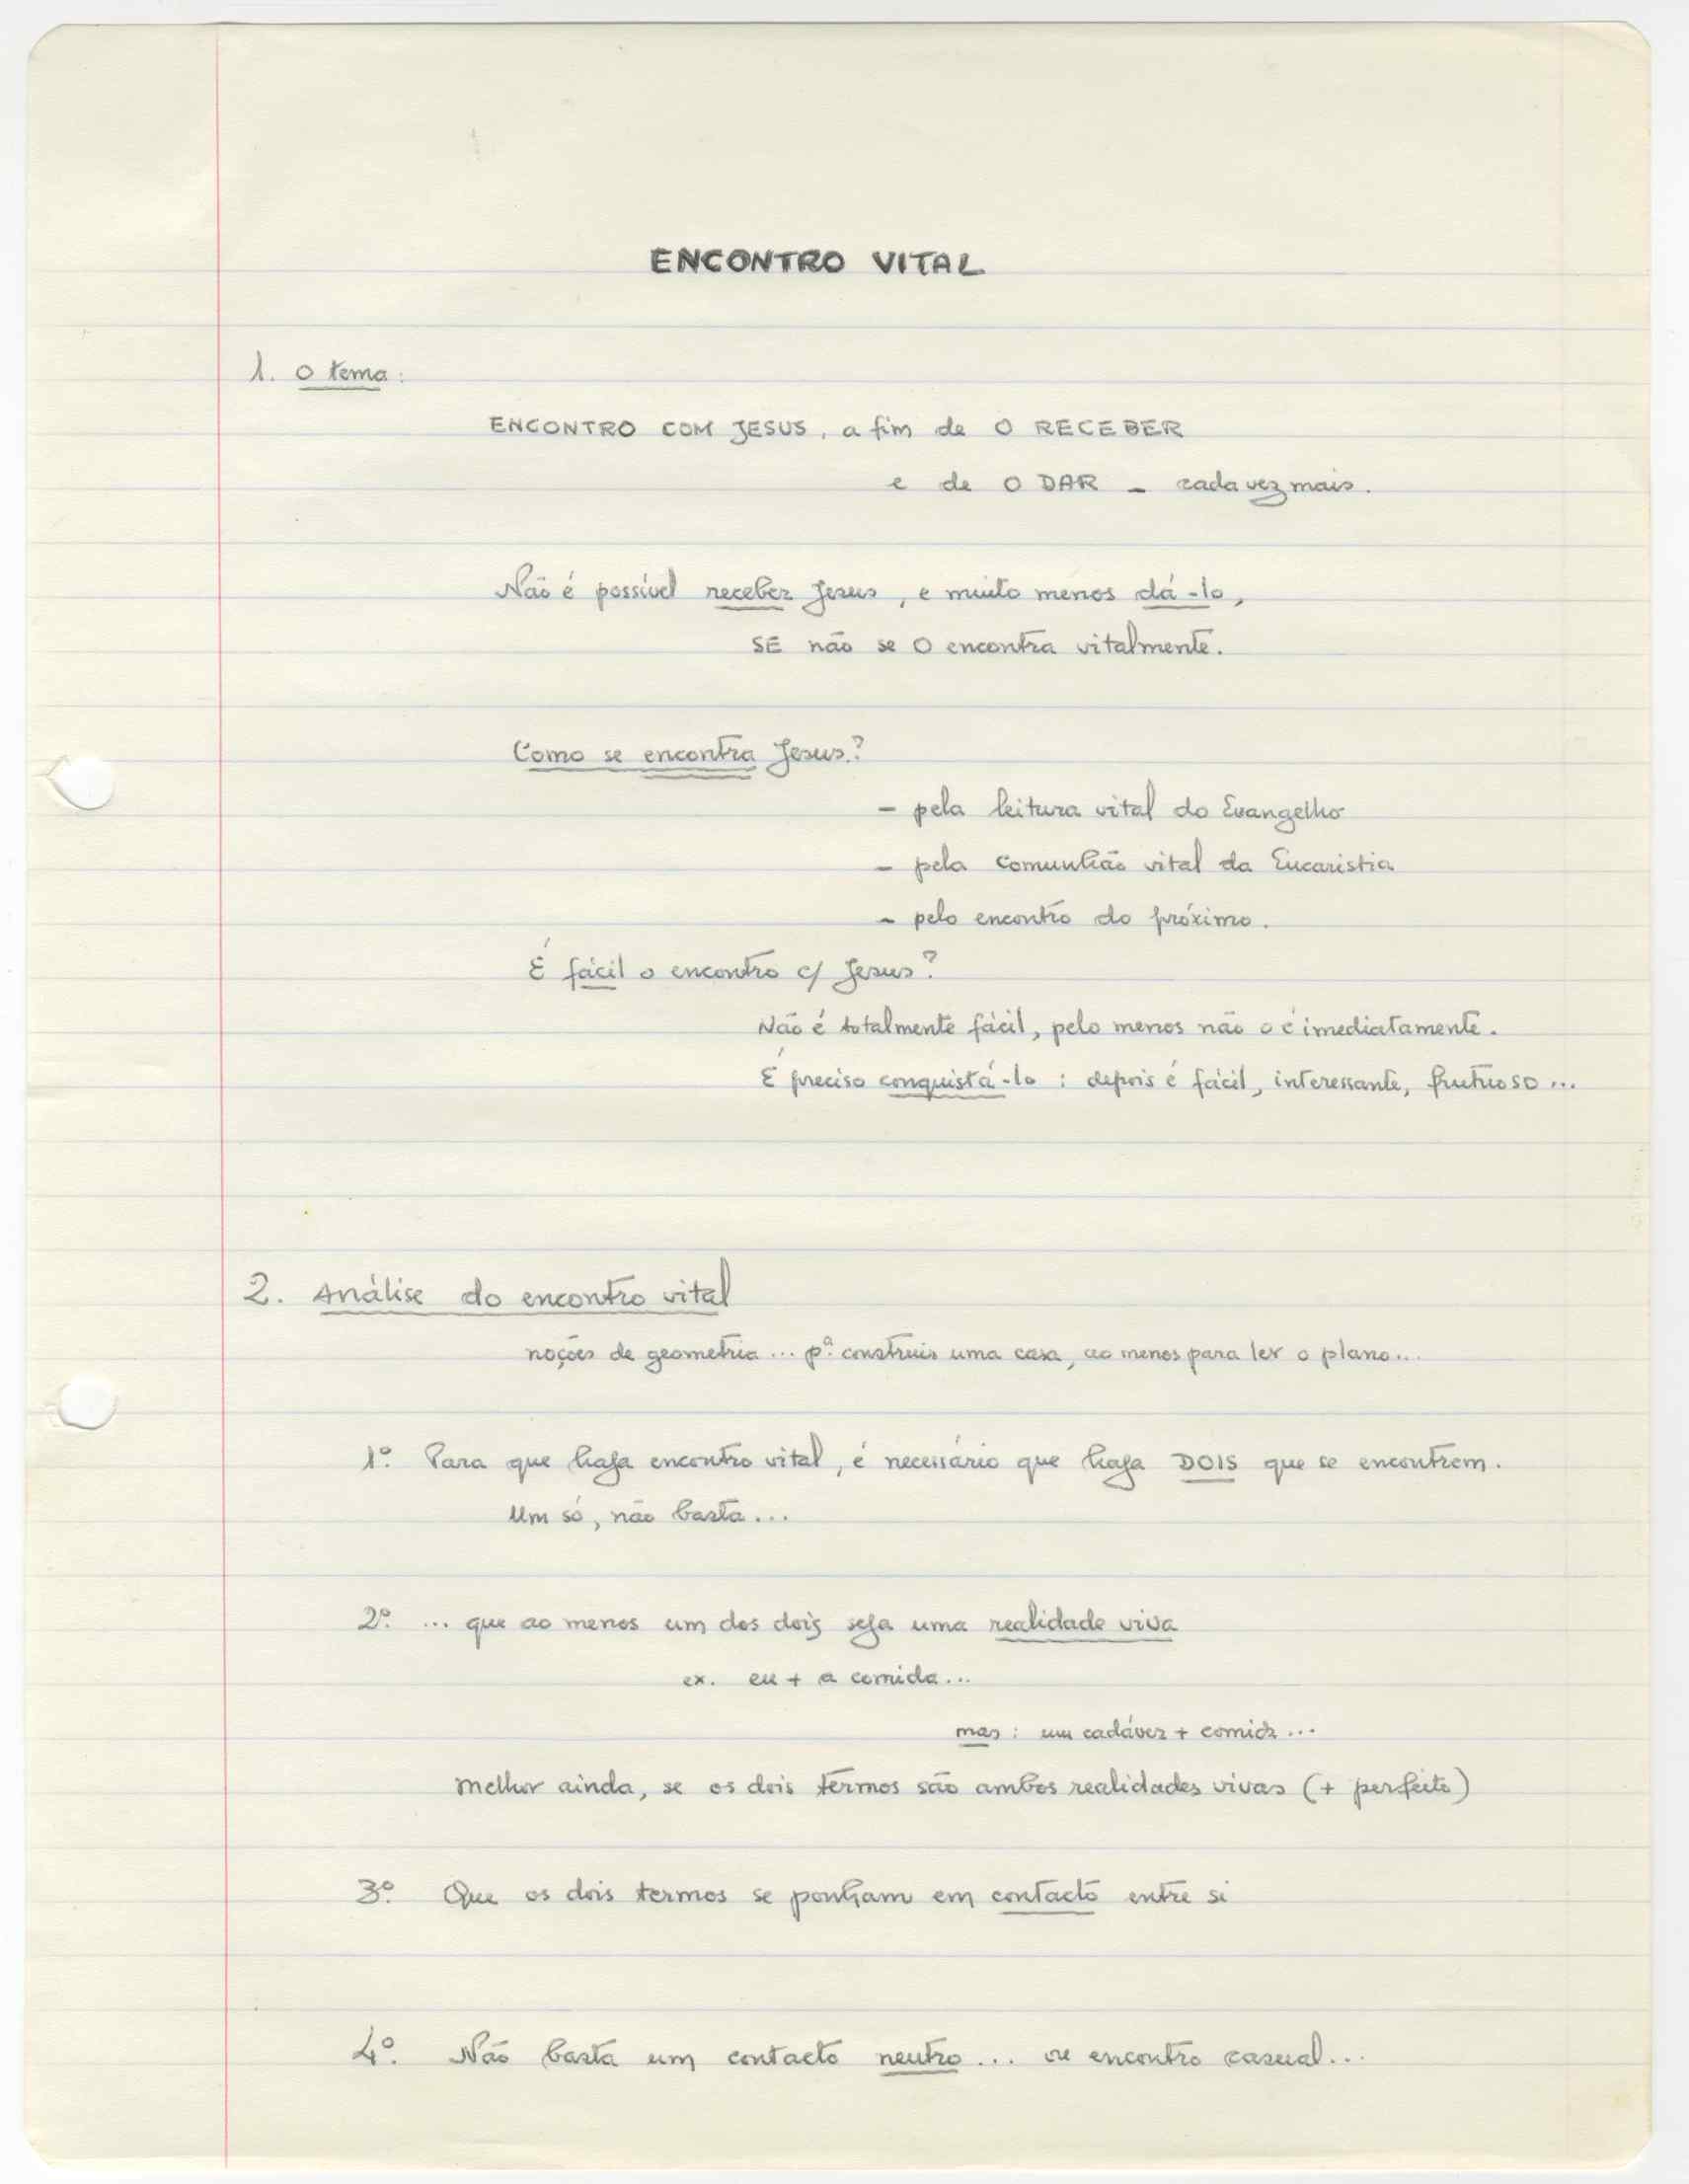 ENCONTRO VITAL
1. O tema:
ENCONTRO COM JESUS, a fim de O RECEBER
e de O DAR - cada vez mais.
Não é possível receber Jesus, e muito menos dá-lo,
SE não se O encontra vitalmente.
Como se encontra Jesus?
- pela leitura vital do Evangelho
- pela comunhão vital da Eucaristia
- pelo encontro do próximo.
É fácil o encontro c/ Jesus?
Não é totalmente fácil, pelo menos não o é imediatamente.
É preciso conquistá-lo: depois é fácil, interessante, frutuoso...
2. Análise do encontro vital
noções de geometria... pª. construir uma casa, ao menos para ler o plano...
1º. Para que haja encontro vital, é necessário que haja DOIS que se encontrem.
Um só, não basta...
2º. ... que ao menos um dos dois seja uma realidade viva
ex. eu + a comida...
mas: um cadáver + comida...
Melhor ainda, se os dois têrmos são ambos realidades vivas (+ perfeito)
3º. Que os dois termos se ponham em contacto entre si
4º. Não basta um contacto neutro... ou encontro casual...